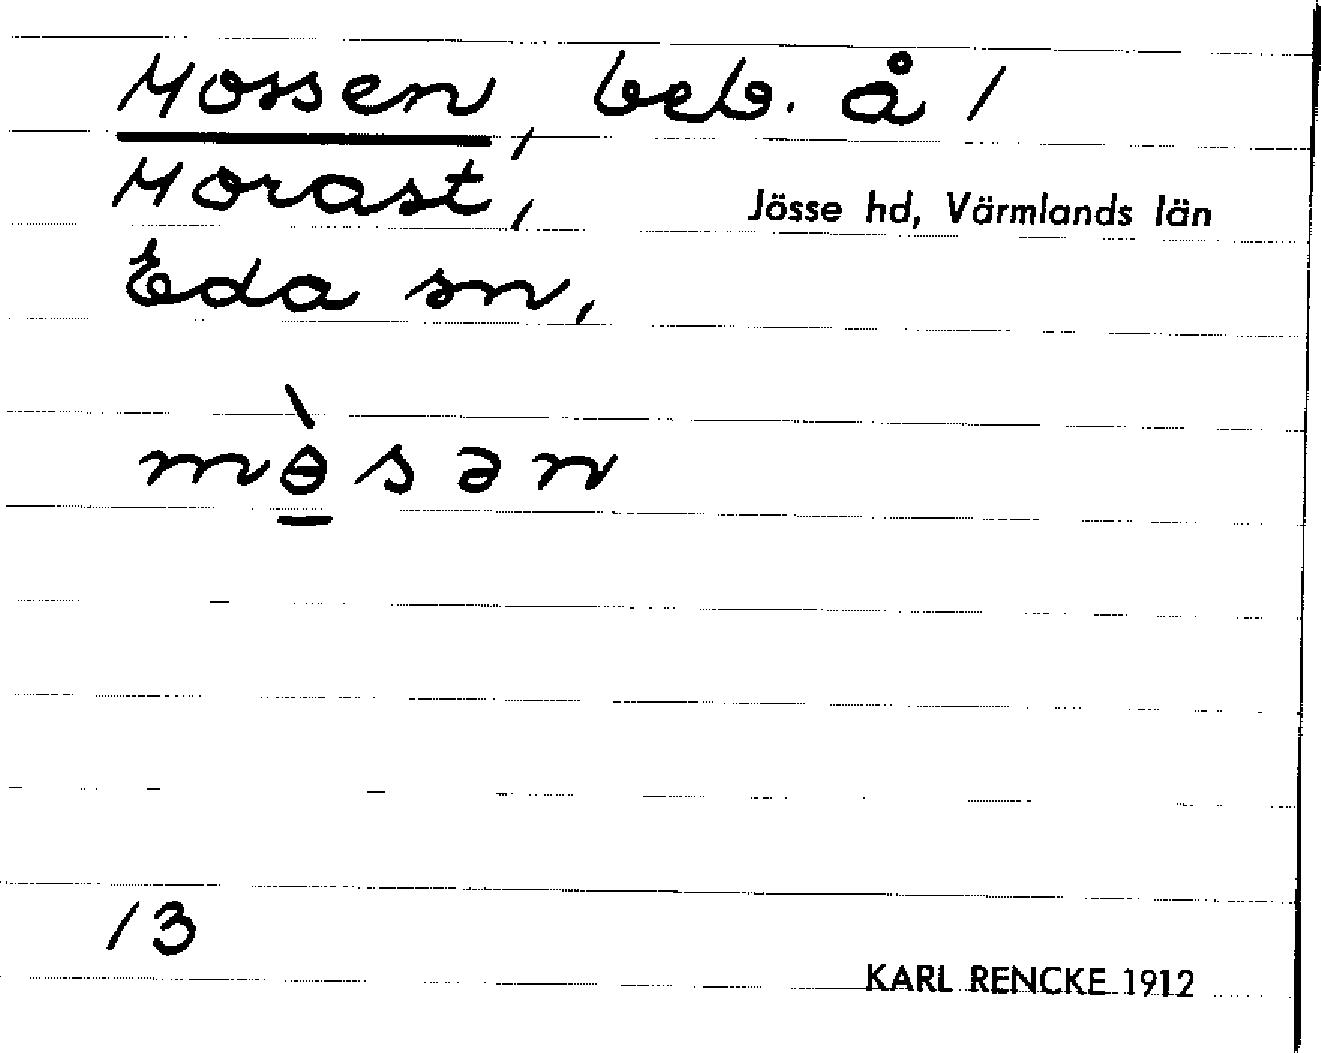 Mossen, beb. å 1
Morast,
Jösse hd, Värmlands län
Eda sn,
mɵ̠̀sən
13
KARL RENCKE 1912